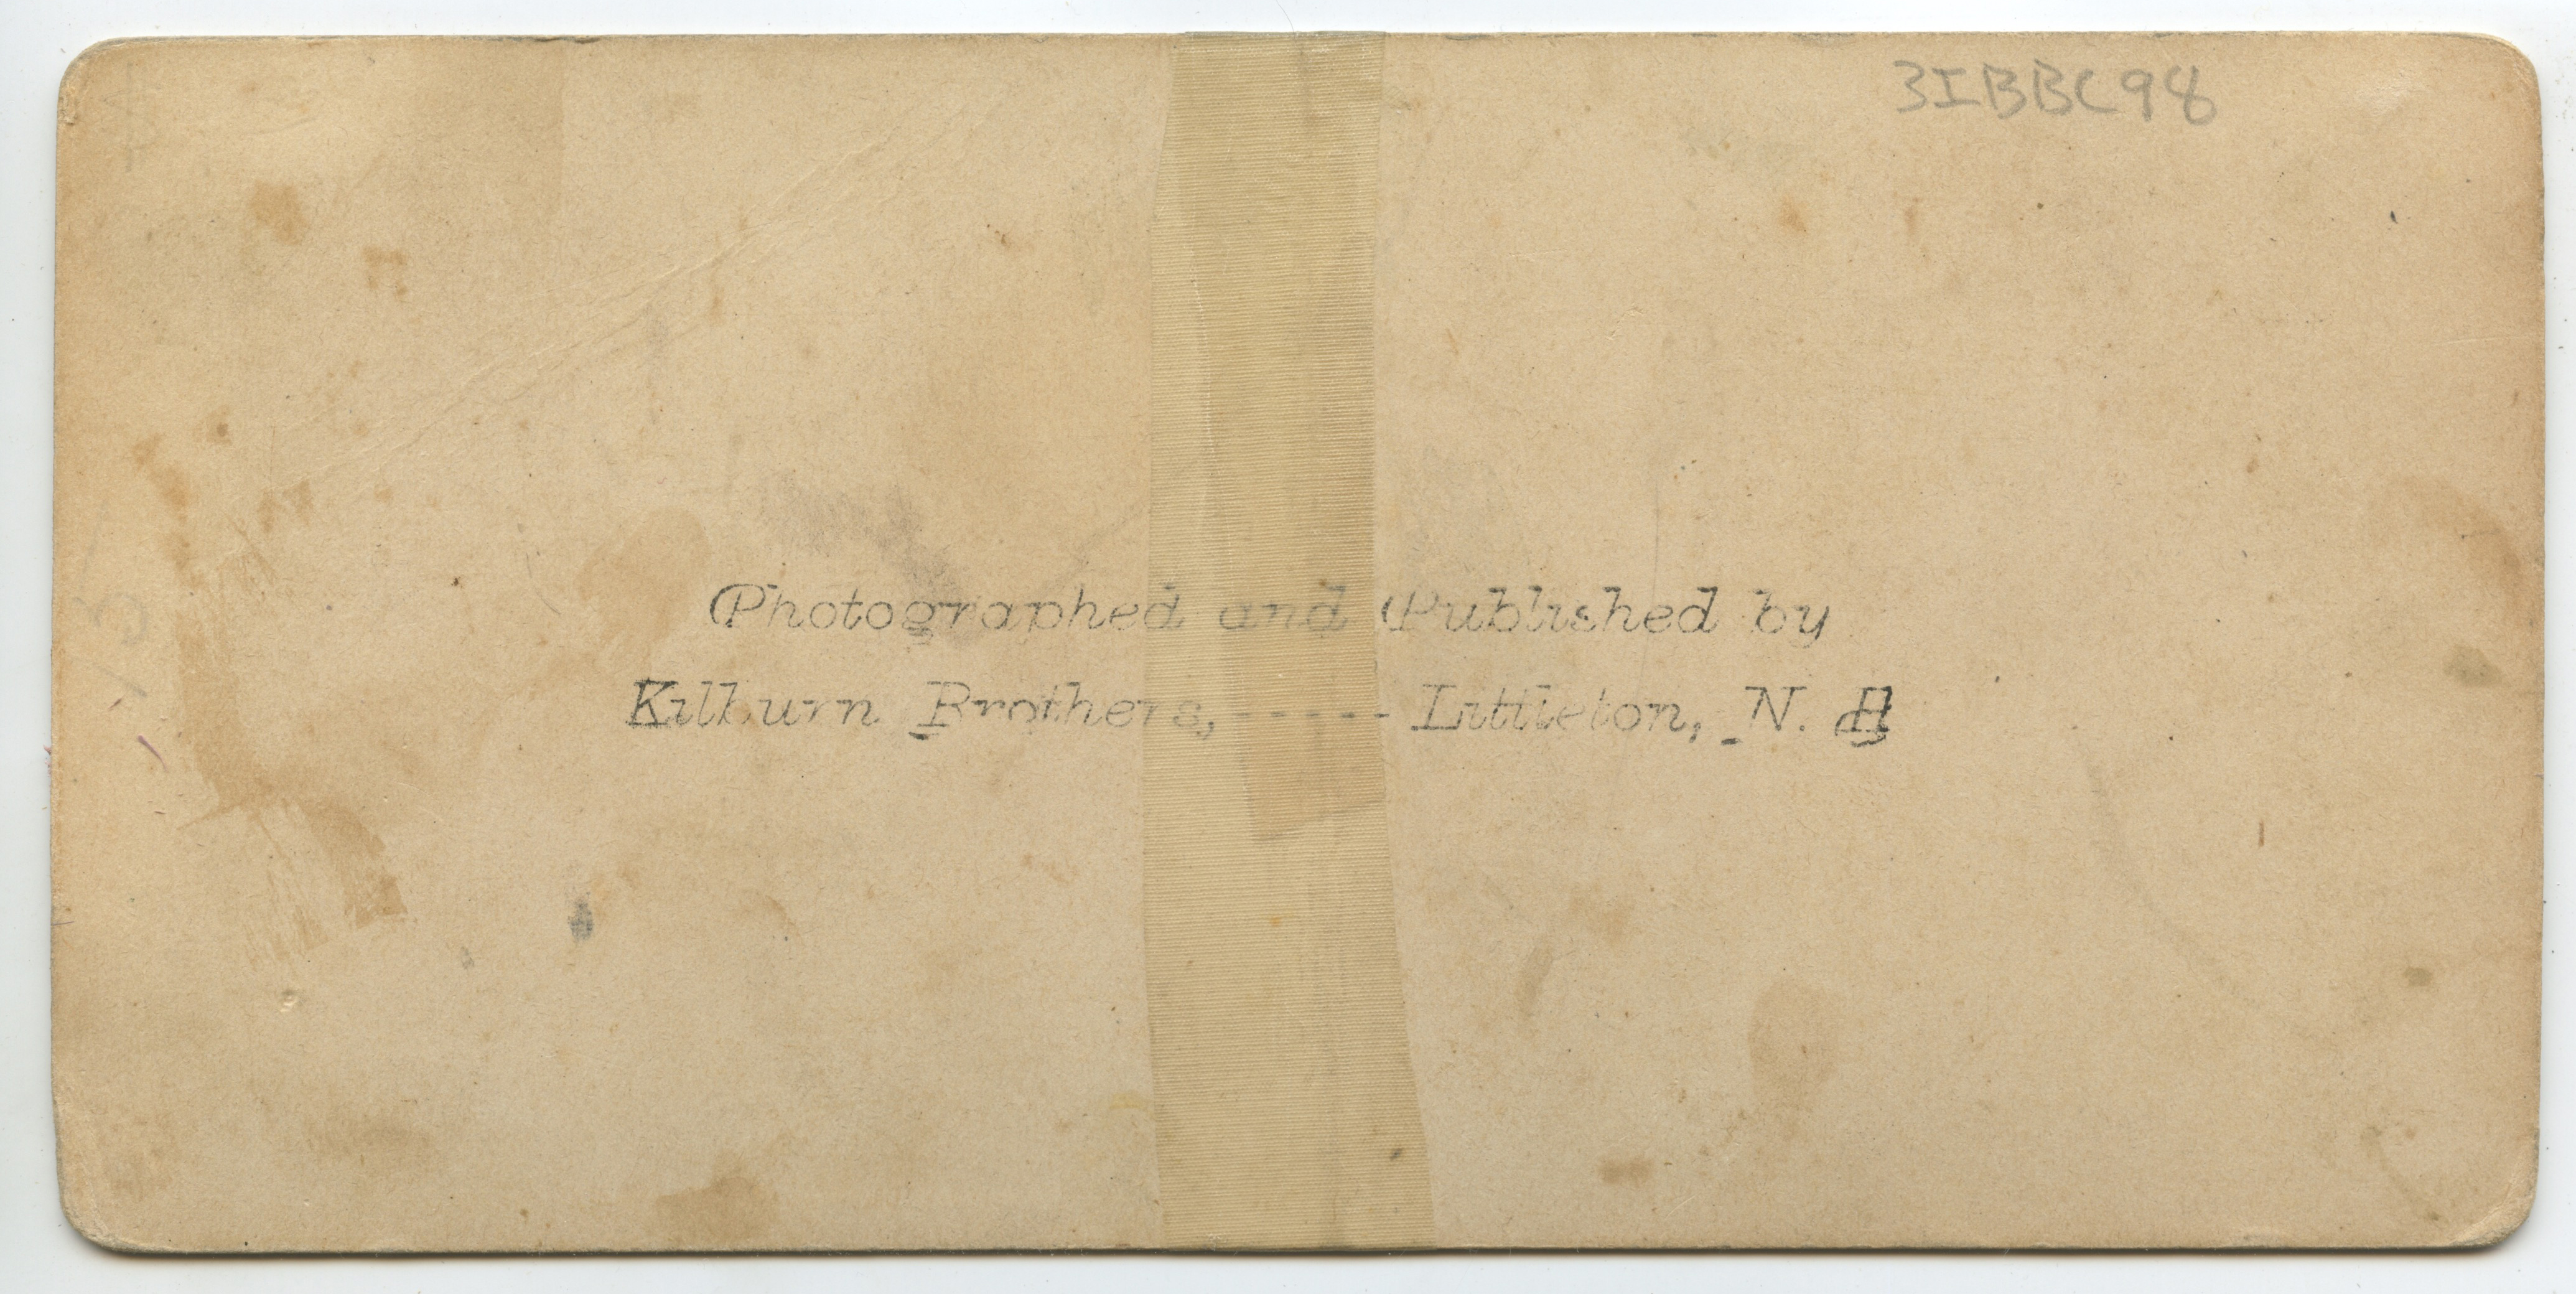 3IBBC98
Photographed and Published by
Kilburn Brothers, ----- Littleton, N. H